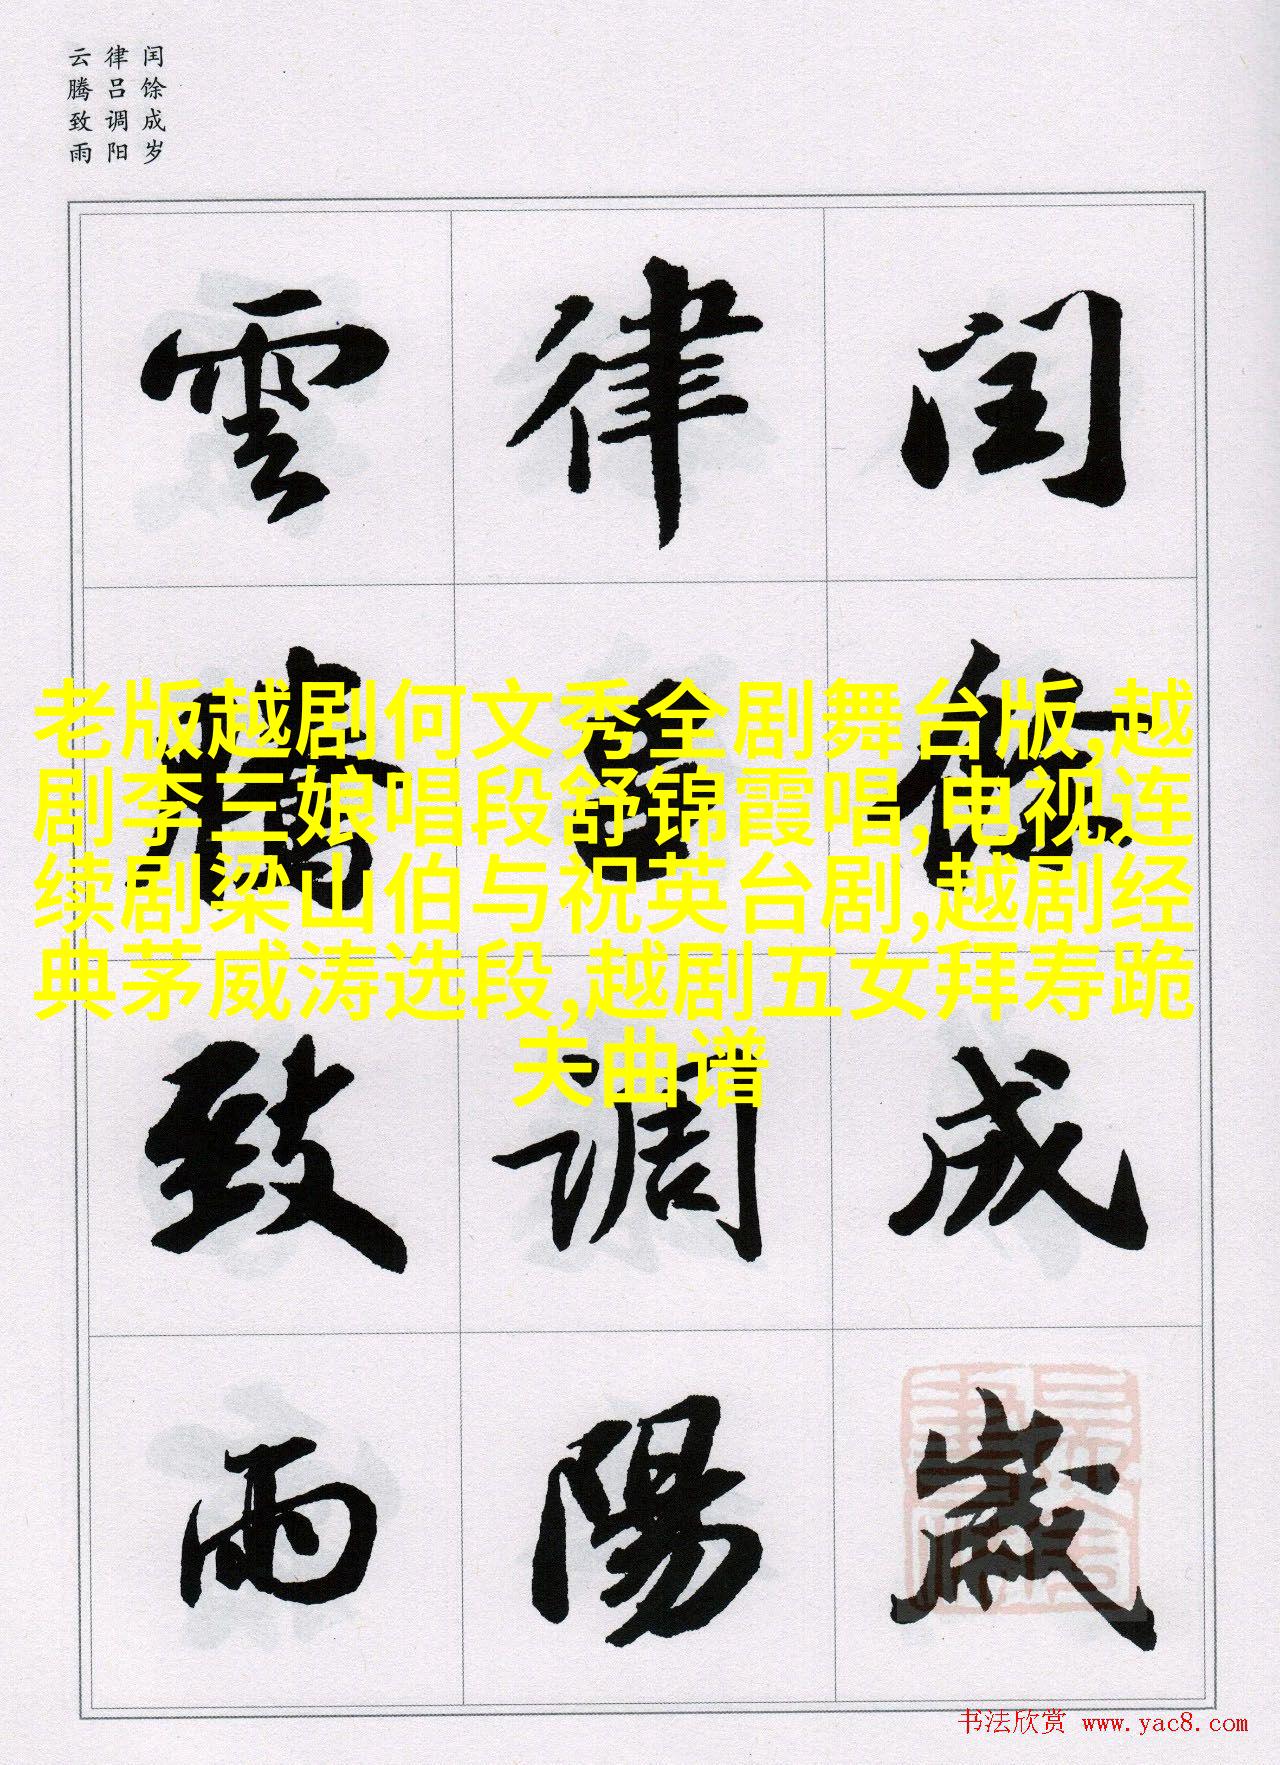 闰馀成岁
律吕调阳
云腾致雨
閏餘成歲
律呂調陽
雲騰致雨
老版越剧何文秀全剧舞台版,越
剧李三娘唱段舒锦霞唱,电视连
续剧梁山伯与祝英台剧,越剧经
典茅威涛选段,越剧五女拜寿跪
夫曲谱
书法欣赏 www.yac8.com